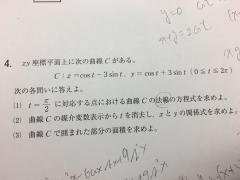 y=0
x+y=2
4. xy 座標平面上に次の曲線 C がある。
C : x = cos t − 3 sin t, y = cos t + 3 sin t (0 ≦ t ≦ 2π)
次の各問いに答えよ。
(1) t = π/2 に対応する点における曲線 C の法線の方程式を求めよ。
(2) 曲線 C の媒介変数表示から t を消去し、x と y の関係式を求めよ。
(3) 曲線 C で囲まれた部分の面積を求めよ。